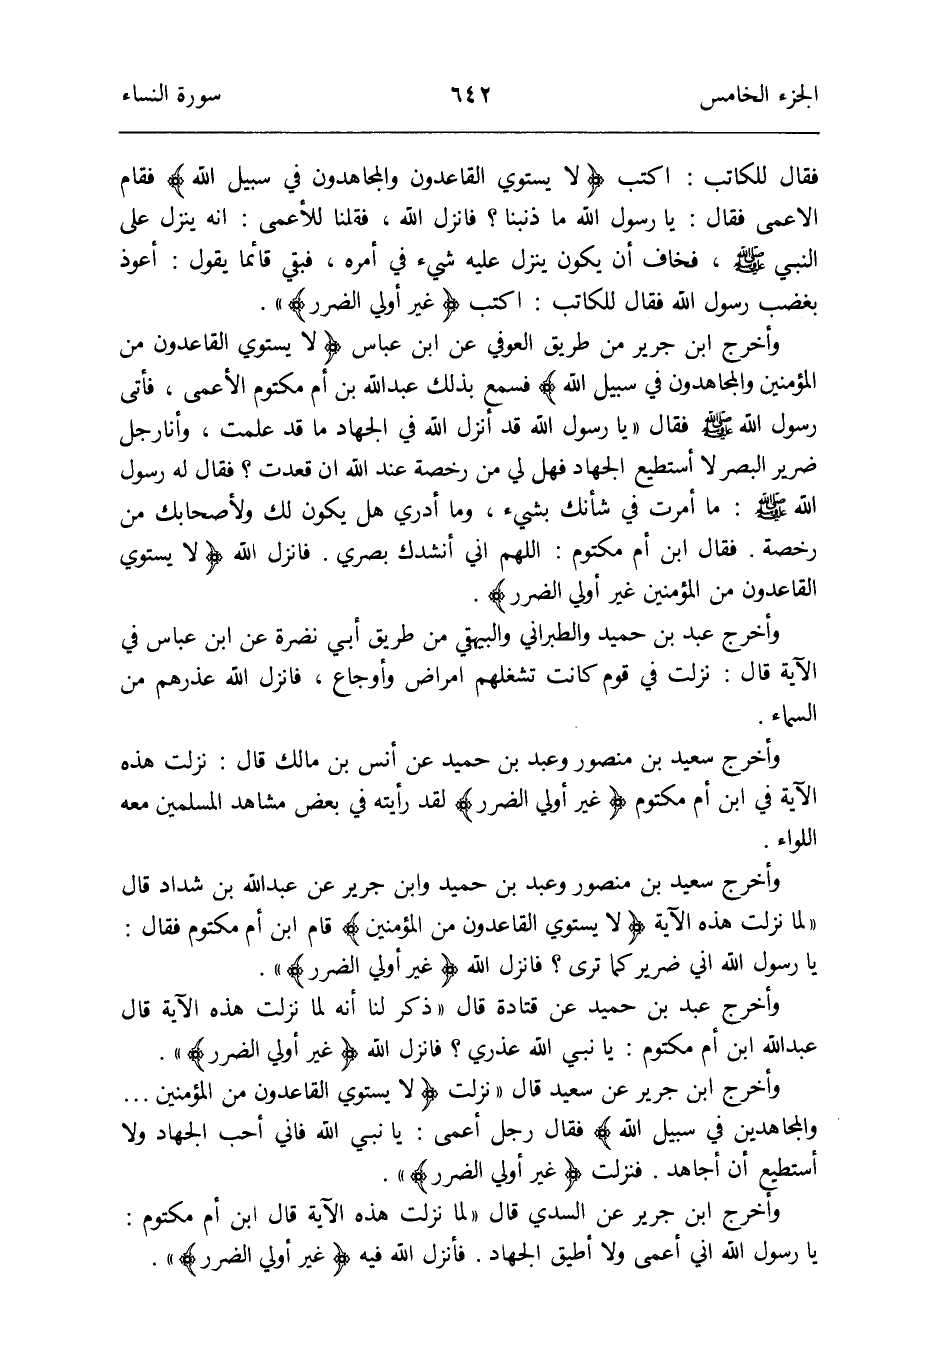 الجزء الخامس ٦٤٢ سورة النساء
فقال للكاتب : اكتب ﴿ لا يستوي القاعدون والمجاهدون في سبيل الله ﴾ فقام
الاعمى فقال : يا رسول الله ما ذنبنا ؟ فانزل الله ، فقلنا للأعمى : انه ينزل على
النبي ﷺ ، فخاف أن يكون ينزل عليه شيء في أمره ، فبقي قائما يقول : أعوذ
بغضب رسول الله فقال للكاتب : اكتب ﴿ غير أولي الضرر ﴾ » .
وأخرج ابن جرير من طريق العوفي عن ابن عباس ﴿ لا يستوي القاعدون من
المؤمنين والمجاهدون في سبيل الله ﴾ فسمع بذلك عبدالله بن أم مكتوم الأعمى ، فأتى
رسول الله ﷺ فقال « يا رسول الله قد أنزل الله في الجهاد ما قد علمت ، وأنا رجل
ضرير البصر لا أستطيع الجهاد فهل لي من رخصة عند الله ان قعدت ؟ فقال له رسول
الله ﷺ : ما أمرت في شأنك بشيء ، وما أدري هل يكون لك ولأصحابك من
رخصة . فقال ابن أم مكتوم : اللهم اني أنشدك بصري . فانزل الله ﴿ لا يستوي
القاعدون من المؤمنين غير أولي الضرر ﴾ .
وأخرج عبد بن حميد والطبراني والبيهقي من طريق أبي نضرة عن ابن عباس في
الآية قال : نزلت في قوم كانت تشغلهم امراض وأوجاع ، فانزل الله عذرهم من
السماء .
وأخرج سعيد بن منصور وعبد بن حميد عن أنس بن مالك قال : نزلت هذه
الآية في ابن أم مكتوم ﴿ غير أولي الضرر ﴾ لقد رأيته في بعض مشاهد المسلمين معه
اللواء .
وأخرج سعيد بن منصور وعبد بن حميد وابن جرير عن عبدالله بن شداد قال
« لما نزلت هذه الآية ﴿ لا يستوي القاعدون من المؤمنين ﴾ قام ابن أم مكتوم فقال :
يا رسول الله اني ضرير كما ترى ؟ فانزل الله ﴿ غير أولي الضرر ﴾ » .
وأخرج عبد بن حميد عن قتادة قال « ذكر لنا أنه لما نزلت هذه الآية قال
عبدالله ابن أم مكتوم : يا نبي الله عذري ؟ فانزل الله ﴿ غير أولي الضرر ﴾ » .
وأخرج ابن جرير عن سعيد قال « نزلت ﴿ لا يستوي القاعدون من المؤمنين ...
والمجاهدين في سبيل الله ﴾ فقال رجل أعمى : يا نبي الله فاني أحب الجهاد ولا
أستطيع أن أجاهد . فنزلت ﴿ غير أولي الضرر ﴾ » .
وأخرج ابن جرير عن السدي قال « لما نزلت هذه الآية قال ابن أم مكتوم :
يا رسول الله اني أعمى ولا أطيق الجهاد . فأنزل الله فيه ﴿ غير أولي الضرر ﴾ » .